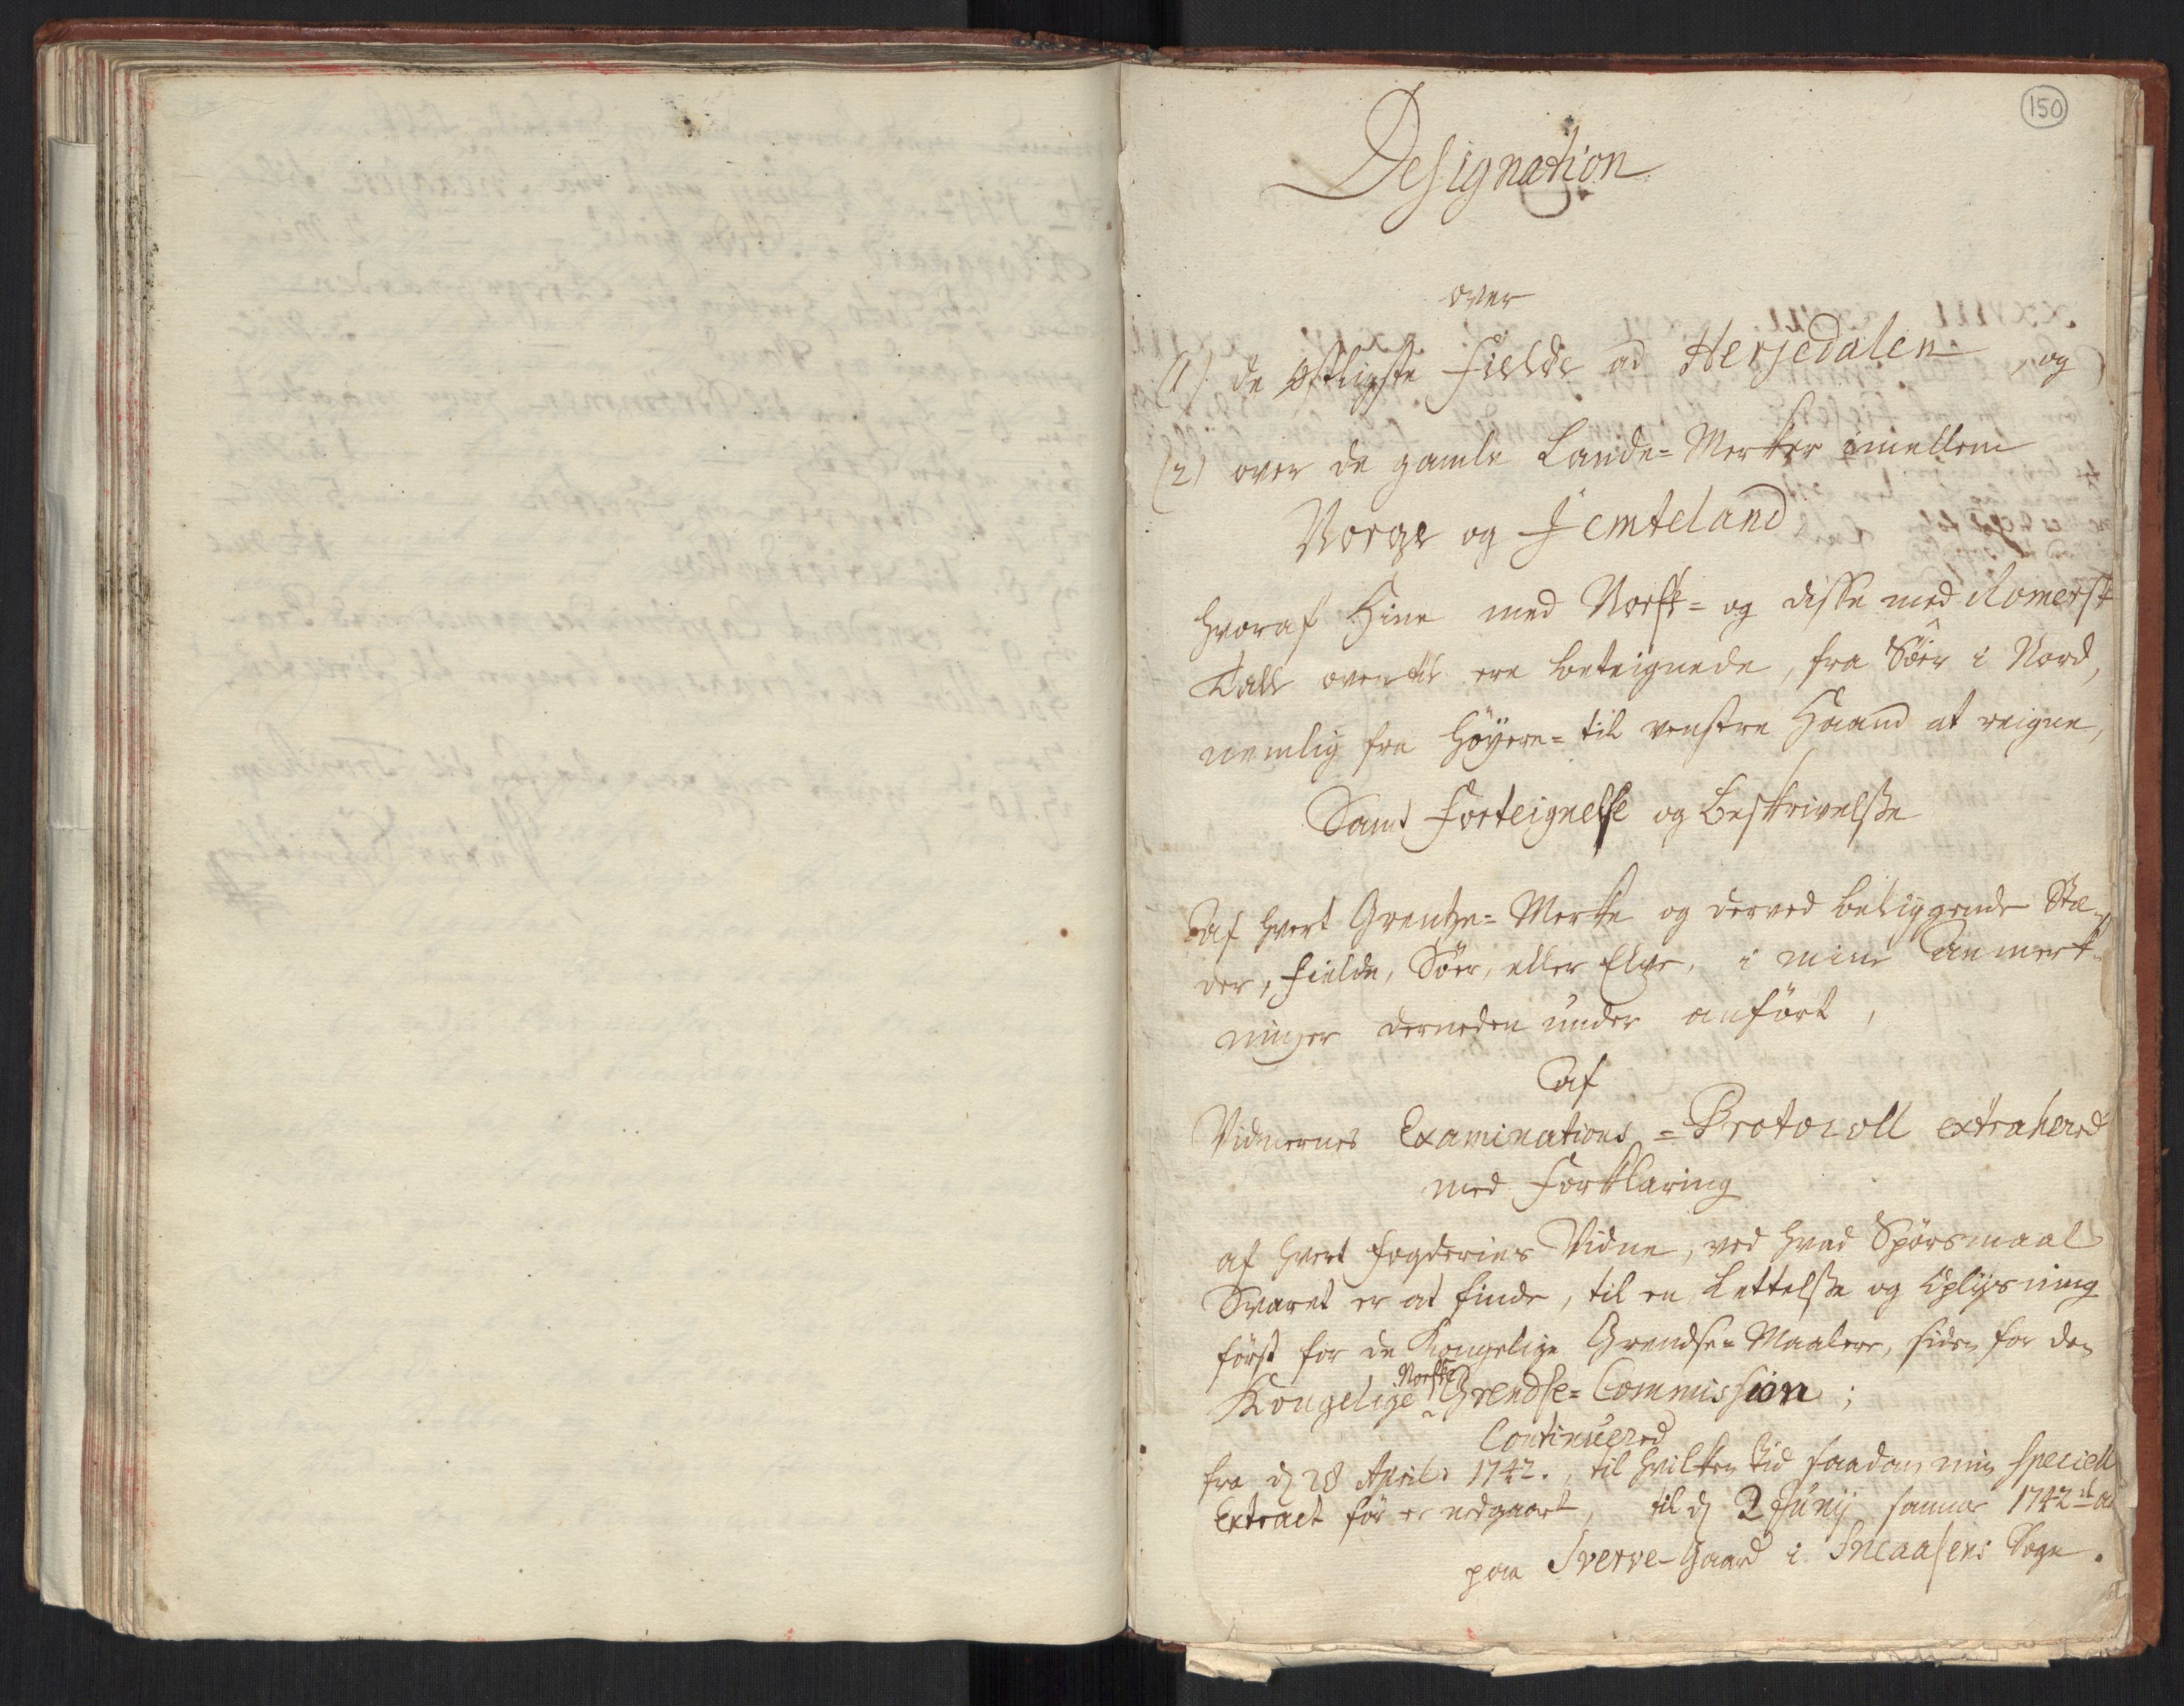 150
Designation
over
(1) de östligste Fielde ad Herjedalen, og
(2) over de gamle Lande-Merker imellem
Norge og Jemteland
hvoraf Hine med Norsk- og disse med Romersk
Tall overalt ere beteignede, fra Söer i Nord,
nemlig fra Höyere- til venstre Haand at reigne,
Samt Forteignelse og Beskrivelsse
af hvert Grentze-Merke og derved beliggende Stæ-
der, Fielde, Söer, eller Elve, i mine Anmerk-
ninger derneden under anfört,
af
Vidnernes Examinations-Protocoll extrahered
med Forklaring
af hvert Fogderies Vidne, ved hvad Spörsmaal
Svaret er at finde, til en Lettelsse og Oplysning
först for de Kongelige Grendse-Maalere, siden for den
Kongelige Norske Grendse-Commission;
Continuered
fra d 28 April: 1742., til hvilken Tid saadan min speciell
Extract för er nedgaaet, til d 2 Junij samme 1742
paa Sverve-Gaard i Sneaasens Sogn.